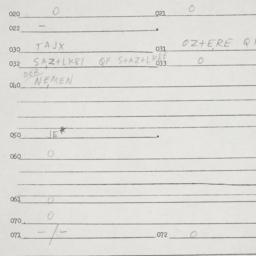 020 0 021 0
022 -
030 TAJX 031 OZ+ERE Q
032 SAZ+LKBI QF S+AZ+LKBE 033 0
NEMEN
040
050 JE*
060 0
061 0
070 0
071 -/- 072 0